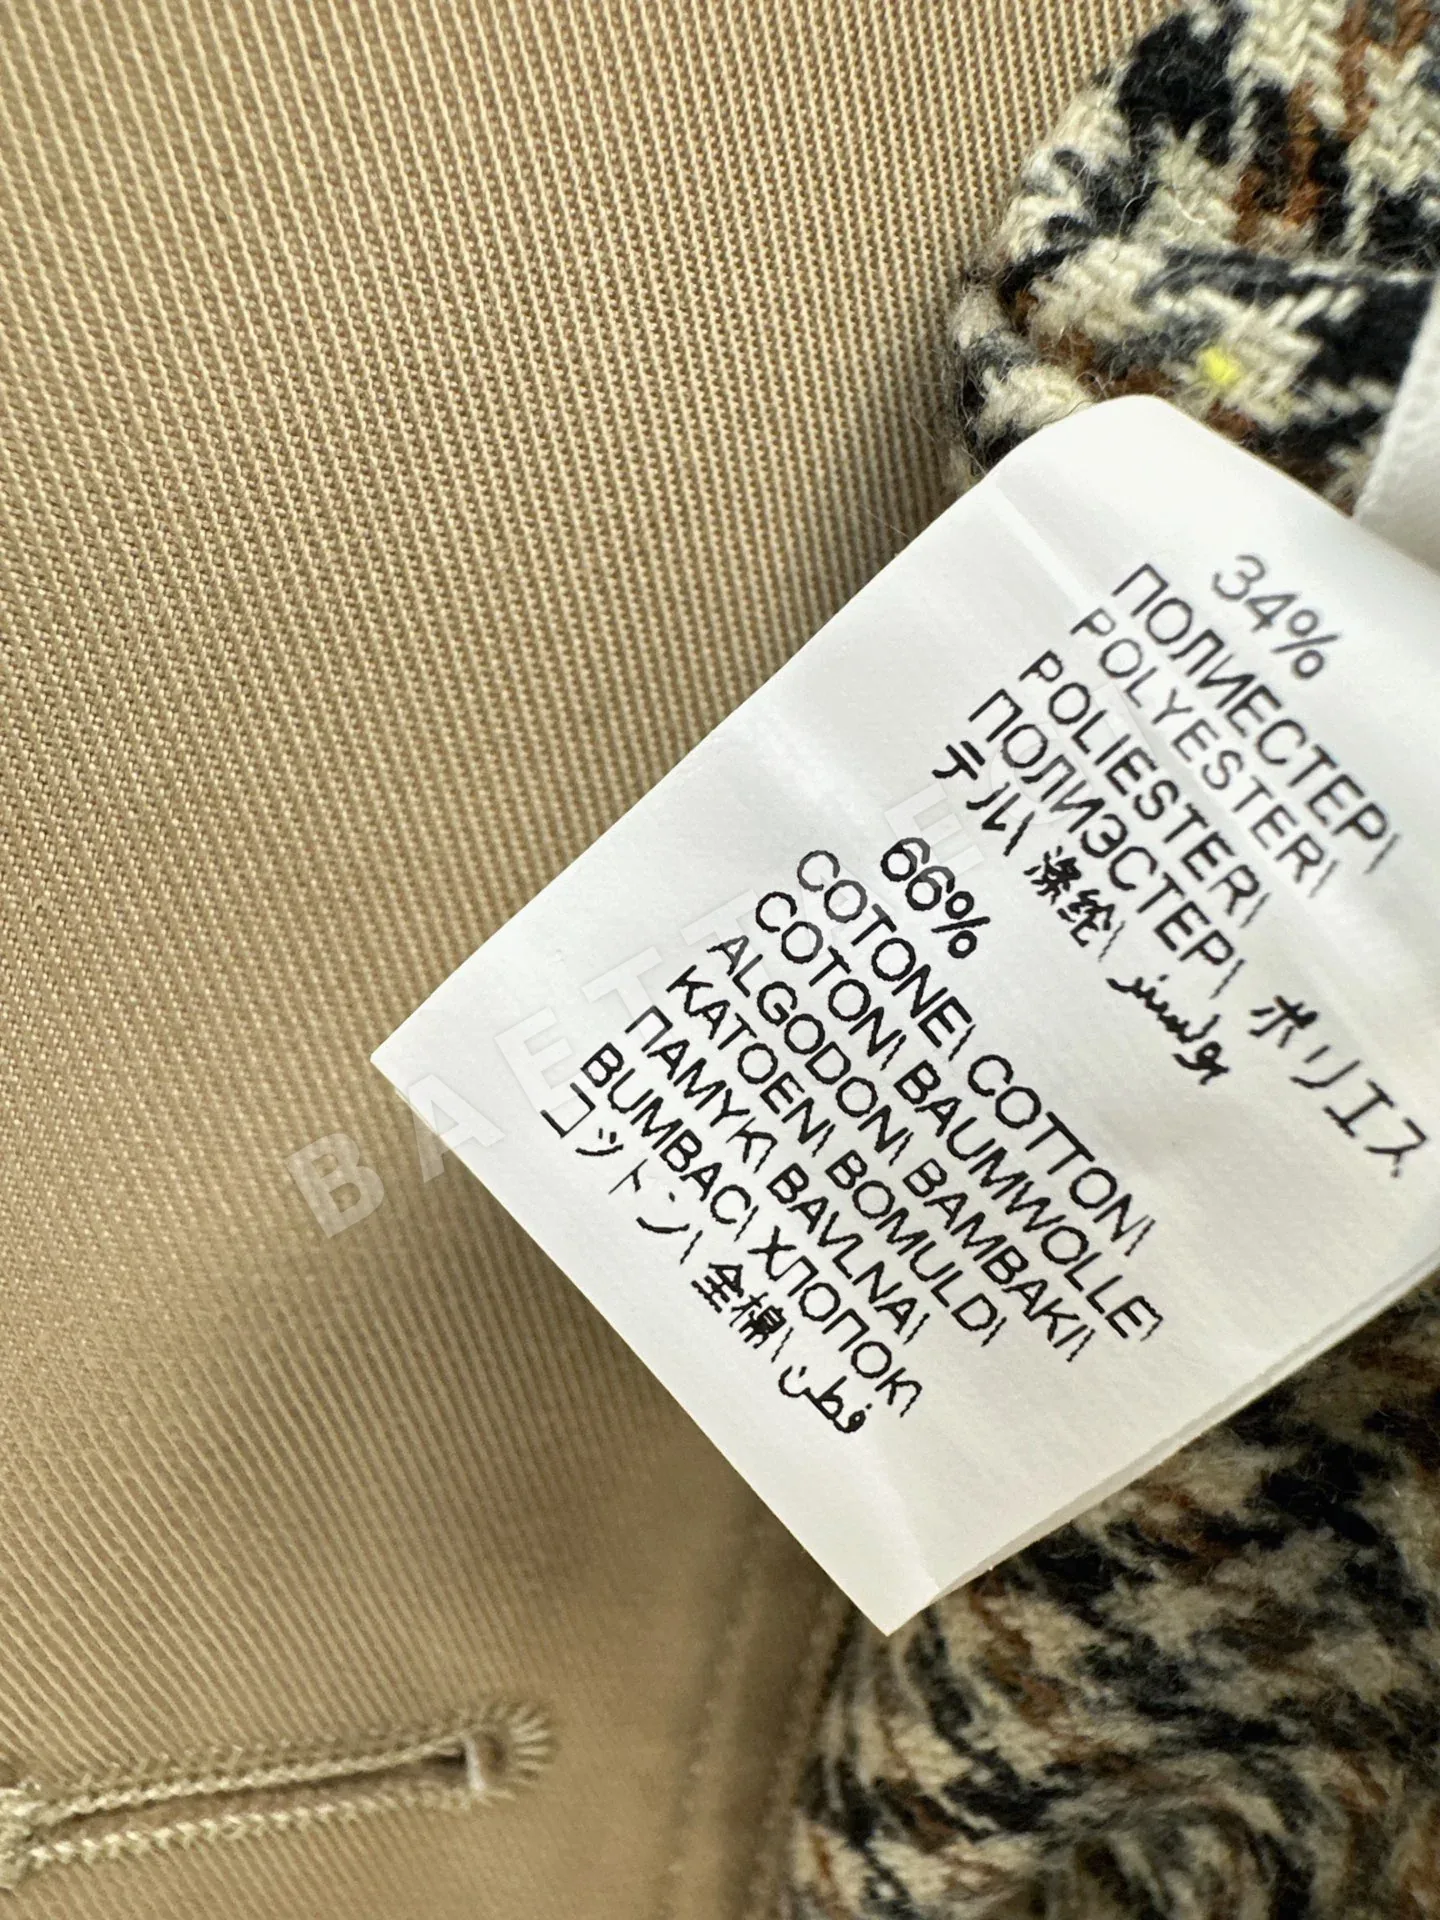 34%
ПОЛИЕСТЕР\
POLYESTER\
POLIESTER\
ПОЛИЭСТЕР\ ポリエス
テル\ 涤纶\ بوليستر
66%
COTONE\ COTTON\
COTON\ BAUMWOLLE\
ALGODON\ BAMBAKI\
KATOEN\ BOMULD\
ПАМУК\ BAVLNA\
BUMBAC\ ХЛОПОК\
コットン\ 全棉\ قطن